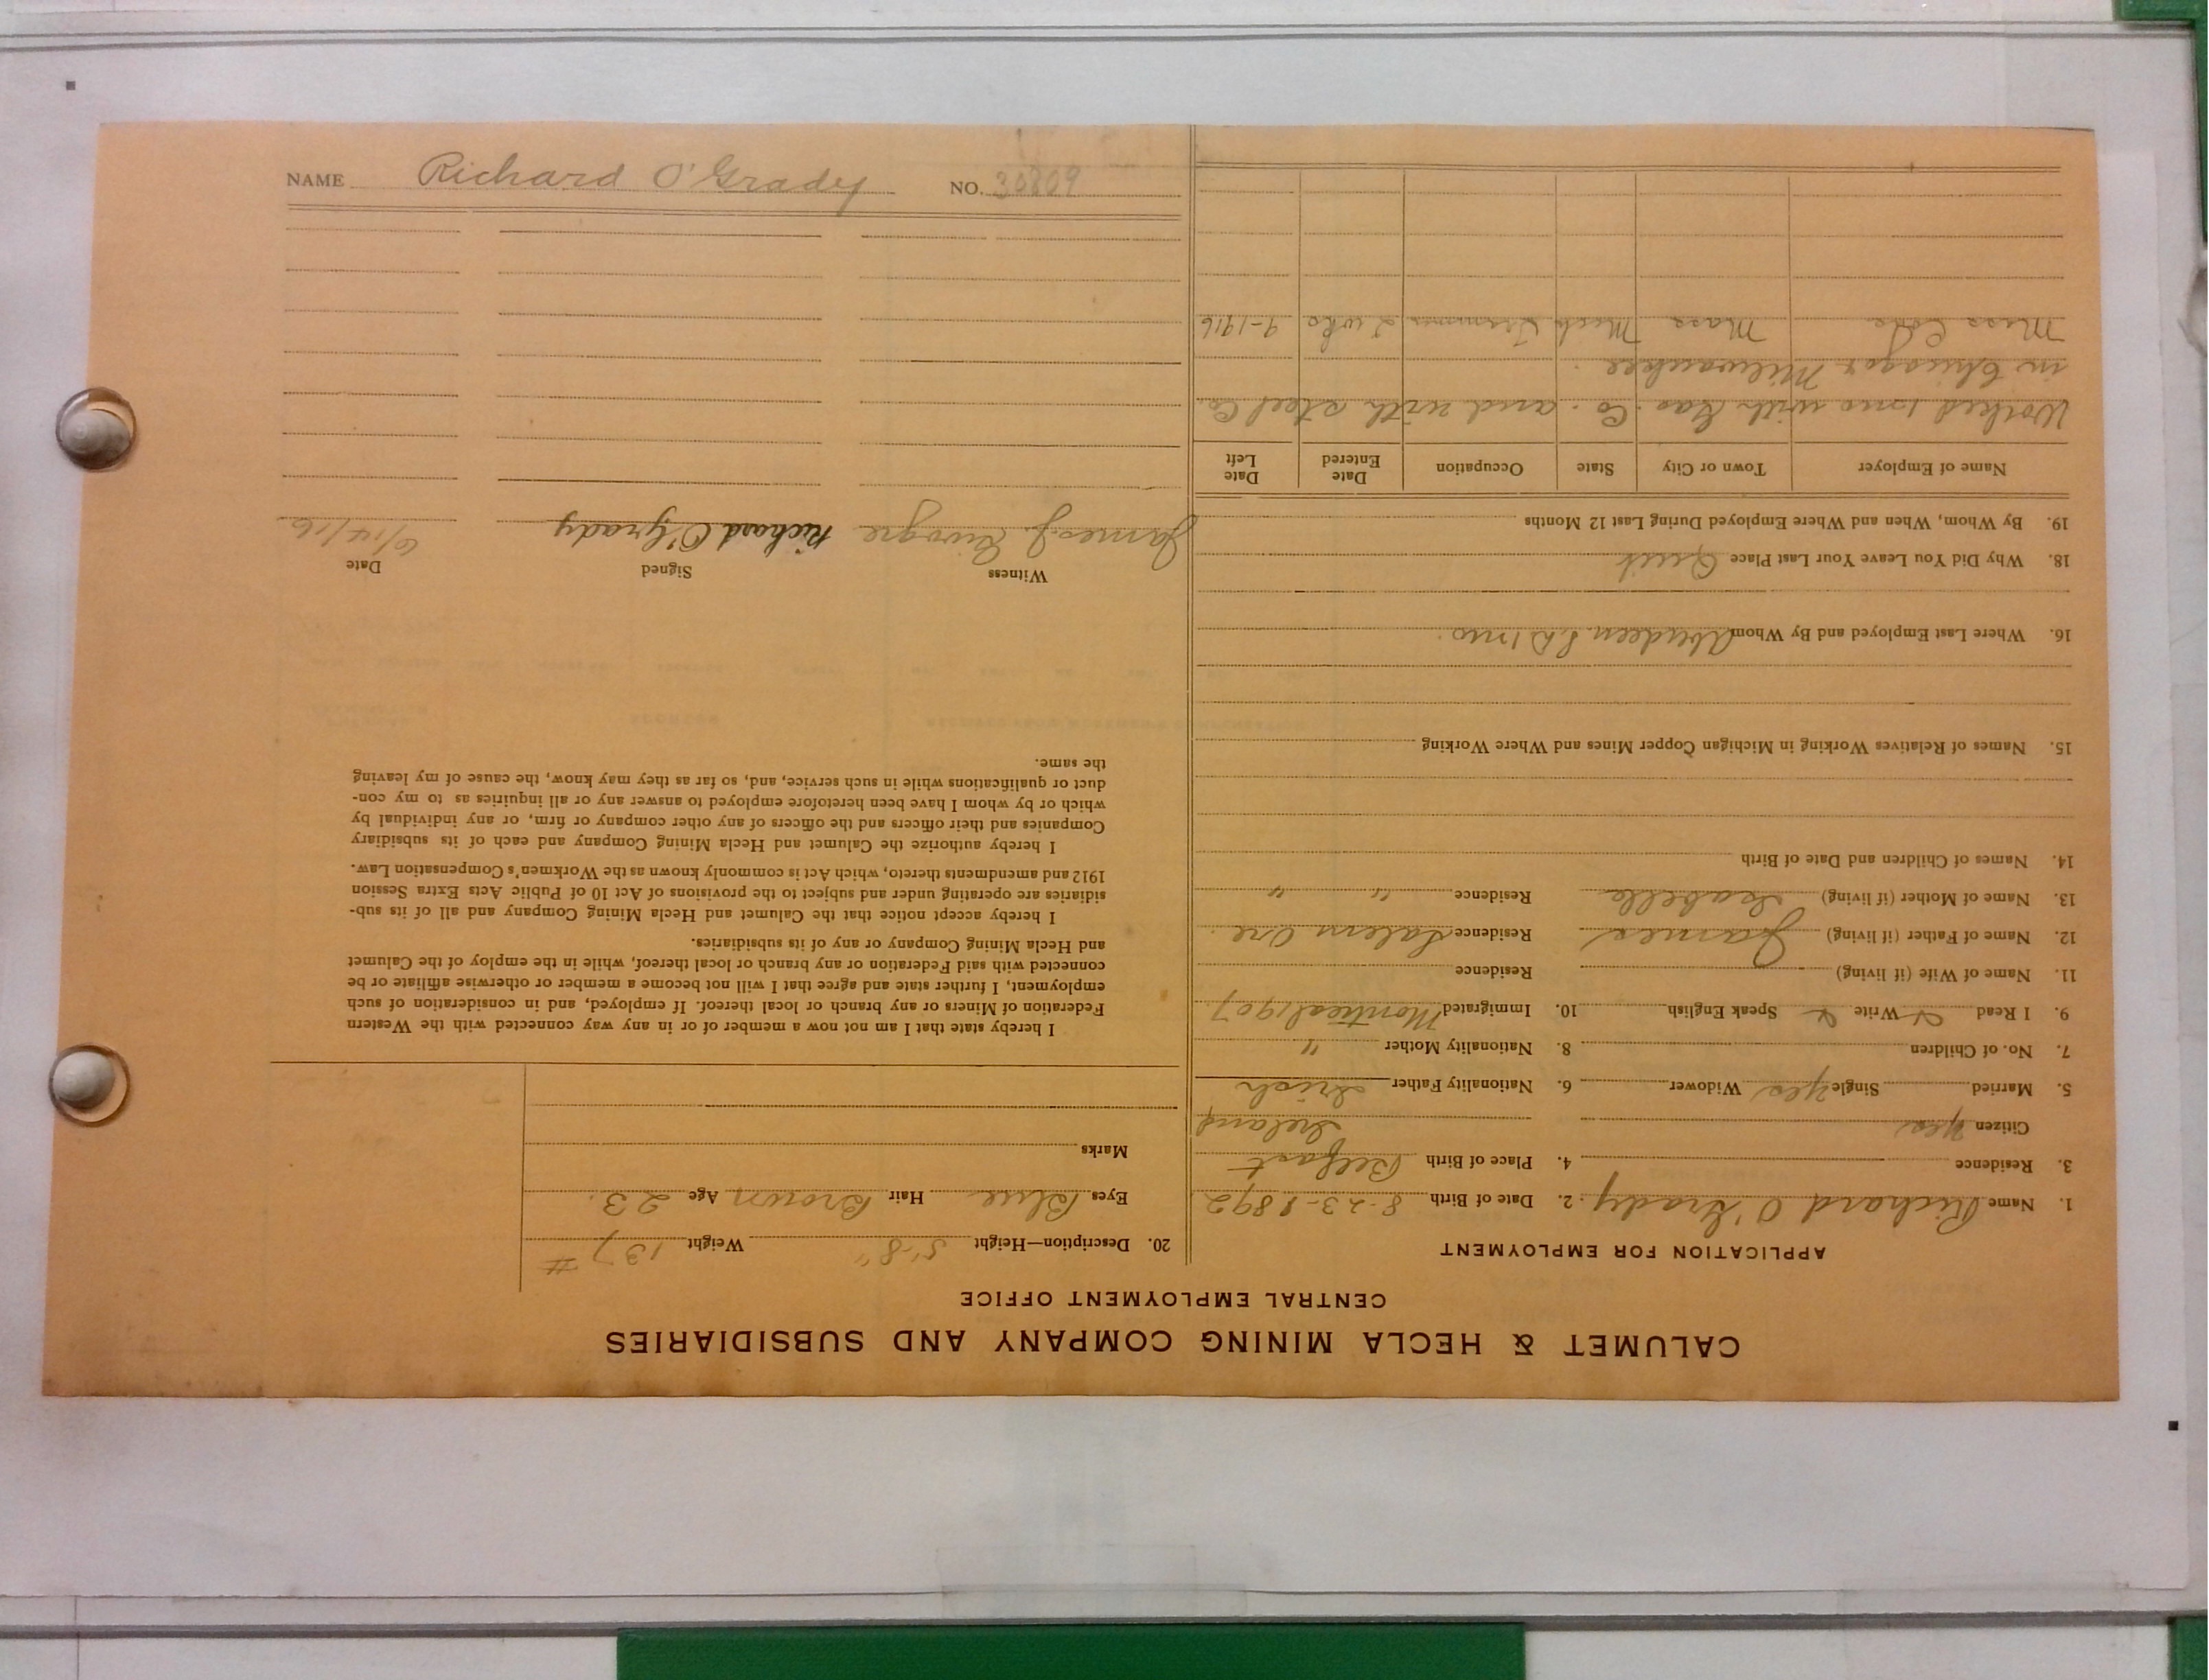 CALUMET & HECLA MINING COMPANY AND SUBSIDIARIES
CENTRAL EMPLOYMENT OFFICE
APPLICATION FOR EMPLOYMENT
1. Name Richard O'Grady. 2. Date of Birth 8-23-1892
3. Residence 4. Place of Birth Belfast
Citizen yes Ireland
5. Married Single yes Widower 6. Nationality Father Irish
7. No. of Children 8. Nationality Mother "
9. I Read Write Speak English 10. Immigrated Montreal 1907
11. Name of Wife (if living) Residence
12. Name of Father (if living) James Residence Salem Ore.
13. Name of Mother (if living) Isabella Residence " "
14. Names of Children and Date of Birth
15. Names of Relatives Working in Michigan Copper Mines and Where Working
16. Where Last Employed and By Whom Aberdeen S.D 1 mo.
18. Why Did You Leave Your Last Place Quit
19. By Whom, When and Where Employed During Last 12 Months
Name of Employer Town or City State Occupation Date Entered Date Left
Worked 1 mo with Gas. Co. and with steel Co
in Chicago & Milwaukee.
Mass Cons Mass Mich Trammer 2 wks 9-1916
20. Description—Height 5'-8" Weight 137 #
Eyes Blue Hair Brown Age 23.
Marks
I hereby state that I am not now a member of or in any way connected with the Western
Federation of Miners or any branch or local thereof. If employed, and in consideration of such
employment, I further state and agree that I will not become a member or otherwise affiliate or be
connected with said Federation or any branch or local thereof, while in the employ of the Calumet
and Hecla Mining Company or any of its subsidiaries.
I hereby accept notice that the Calumet and Hecla Mining Company and all of its sub-
sidiaries are operating under and subject to the provisions of Act 10 of Public Acts Extra Session
1912 and amendments thereto, which Act is commonly known as the Workmen's Compensation Law.
I hereby authorize the Calumet and Hecla Mining Company and each of its subsidiary
Companies and their officers and the officers of any other company or firm, or any individual by
which or by whom I have been heretofore employed to answer any or all inquiries as to my con-
duct or qualifications while in such service, and, so far as they may know, the cause of my leaving
the same.
Witness Signed Date
James J. Richard O'Grady 6/14/16
NAME Richard O'Grady NO. 30809